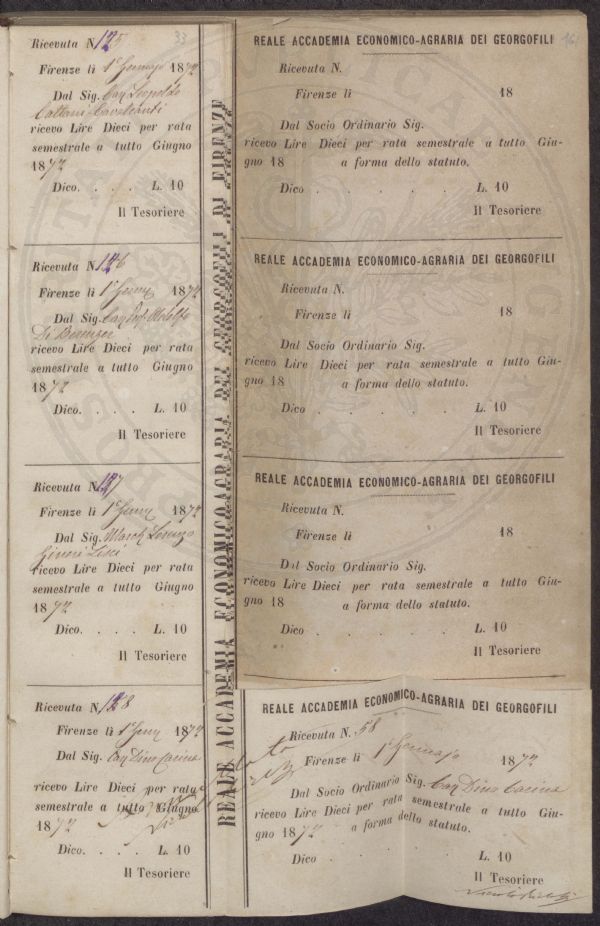 33
161
Ricevuta N. 125
Firenze li 1° Gennajo 1872
Dal Sig. Cav Leopoldo
Cattani Cavalcanti
ricevo Lire Dieci per rata
semestrale a tutto Giugno
1872
Dico. . . . L. 10
Il Tesoriere
Ricevuta N. 126
Firenze li 1° Genn 1872
Dal Sig. Adolfo
ricevo Lire Dieci per rata
semestrale a tutto Giugno
1872
Dico. . . . L. 10
Il Tesoriere
Ricevuta N. 127
Firenze li 1° Genn 1872
Dal Sig. March Lorenzo
Ginori Lisci
ricevo Lire Dieci per rata
semestrale a tutto Giugno
1872
Dico. . . . L. 10
Il Tesoriere
Ricevuta N. 128
Firenze li 1° Genn 1872
Dal Sig. Cav Dino Carina
ricevo Lire Dieci per rata
semestrale a tutto Giugno
1872
Dico. . . . L. 10
Il Tesoriere
REALE ACCADEMIA ECONOMICO-AGRARIA DEI GEORGOFILI DI FIRENZE
REALE ACCADEMIA ECONOMICO-AGRARIA DEI GEORGOFILI
Ricevuta N.
Firenze li 18
Dal Socio Ordinario Sig.
ricevo Lire Dieci per rata semestrale a tutto Giu-
gno 18 a forma dello statuto.
Dico . . . . L. 10
Il Tesoriere
REALE ACCADEMIA ECONOMICO-AGRARIA DEI GEORGOFILI
Ricevuta N.
Firenze li 18
Dal Socio Ordinario Sig.
ricevo Lire Dieci per rata semestrale a tutto Giu-
gno 18 a forma dello statuto.
Dico . . . . L. 10
Il Tesoriere
REALE ACCADEMIA ECONOMICO-AGRARIA DEI GEORGOFILI
Ricevuta N.
Firenze li 18
Dal Socio Ordinario Sig.
ricevo Lire Dieci per rata semestrale a tutto Giu-
gno 18 a forma dello statuto.
Dico . . . . L. 10
Il Tesoriere
REALE ACCADEMIA ECONOMICO-AGRARIA DEI GEORGOFILI
Ricevuta N. 58
Firenze li 1° Gennajo 1872
Dal Socio Ordinario Sig. Cav Dino Carina
ricevo Lire Dieci per rata semestrale a tutto Giu-
gno 1872 a forma dello statuto.
Dico . . . . L. 10
Il Tesoriere